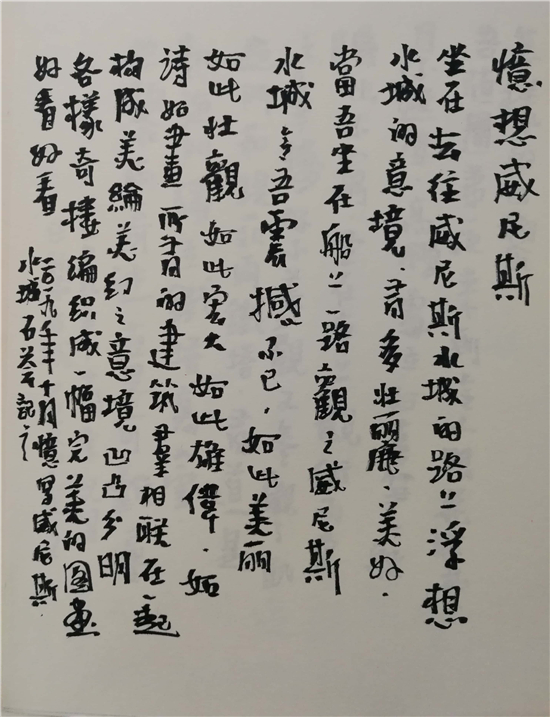 憶想威尼斯
坐在去往威尼斯水城的路上浮想
水城的意境、有多壯麗、美好.
當吾坐在船上一路觀之威尼斯
水城令吾震撼不已，如此美丽
如此壯觀 如此宏大 如此雄偉．如
詩如畫 所有的建筑群相联在一起
构成美綸美幻之意境 凹凸分明
各樣奇樓編织成一幅完美的图畫
好看好看
二〇一九年十月憶 威尼斯
水城 石 記之